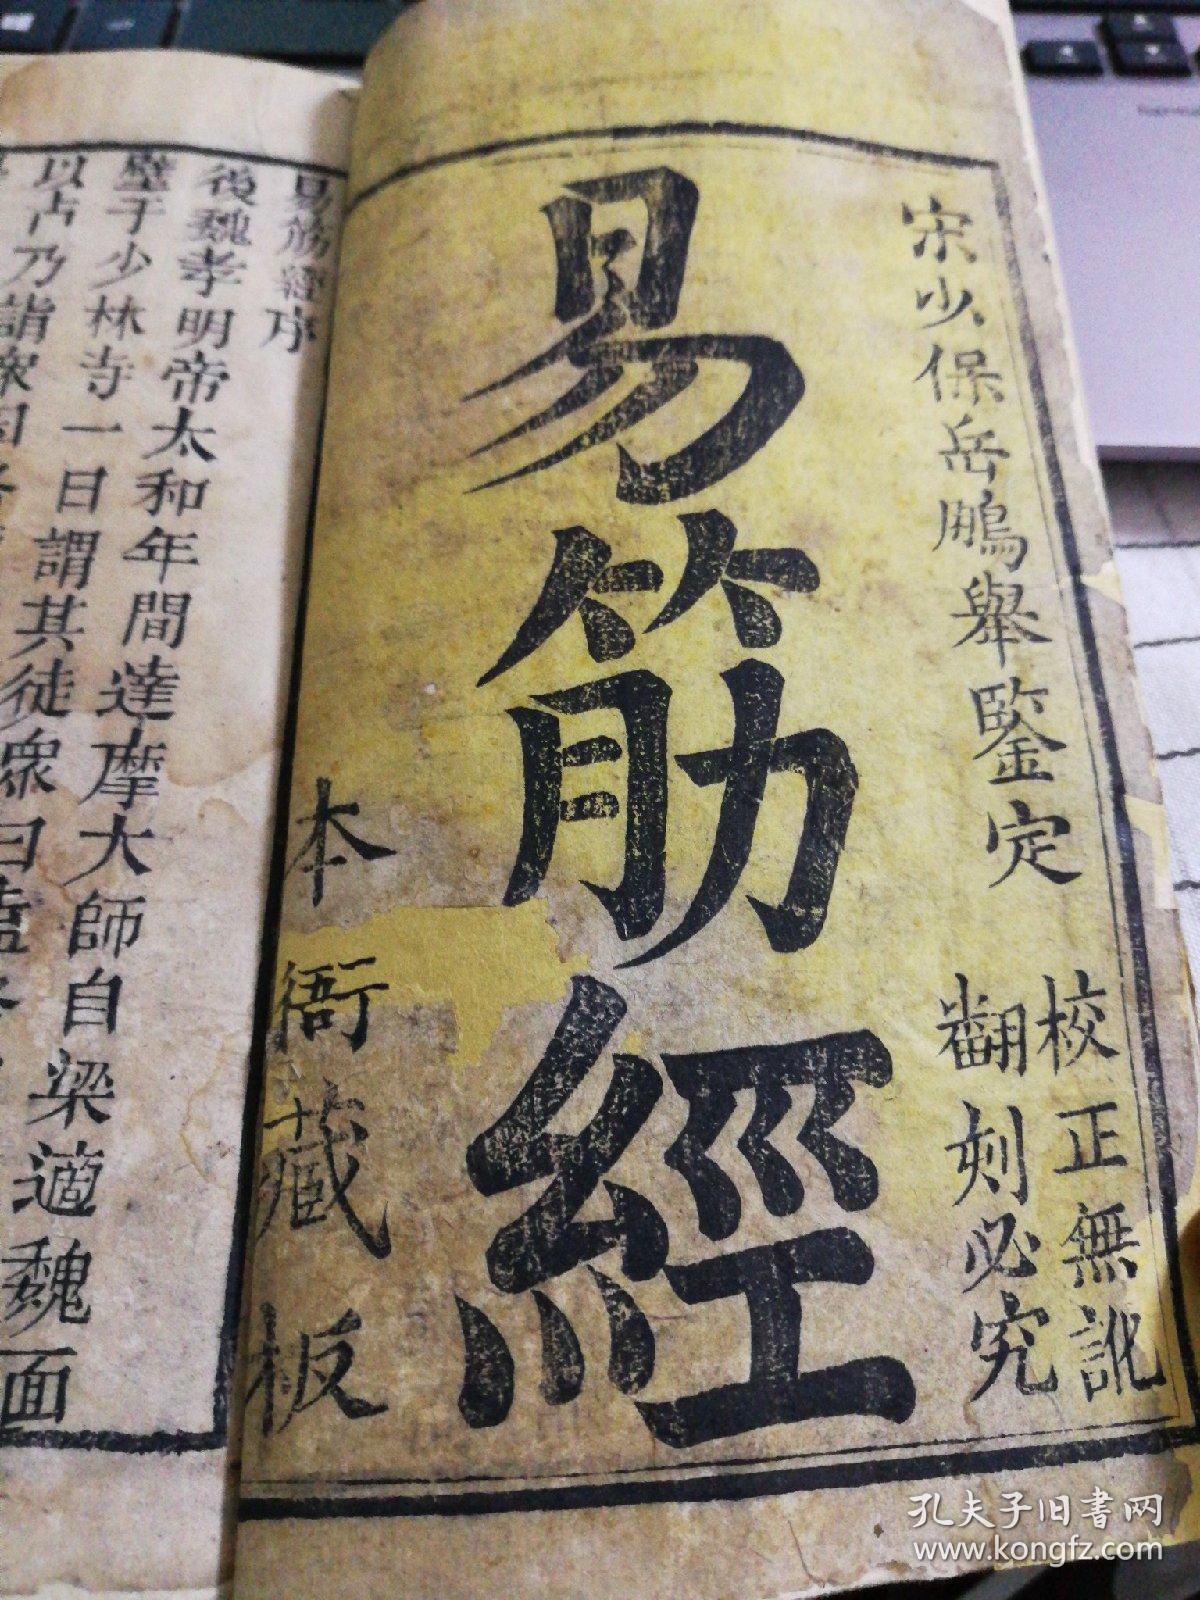 宋少保岳鵬舉鑒定
校正無訛
翻刻必究
易筋經
本衙藏板
易筋經序
後魏孝明帝太和年間達摩大師自梁適魏面
壁于少林寺一日謂其徒衆曰盍
以占乃詣
孔夫子旧书网
www.kongfz.com